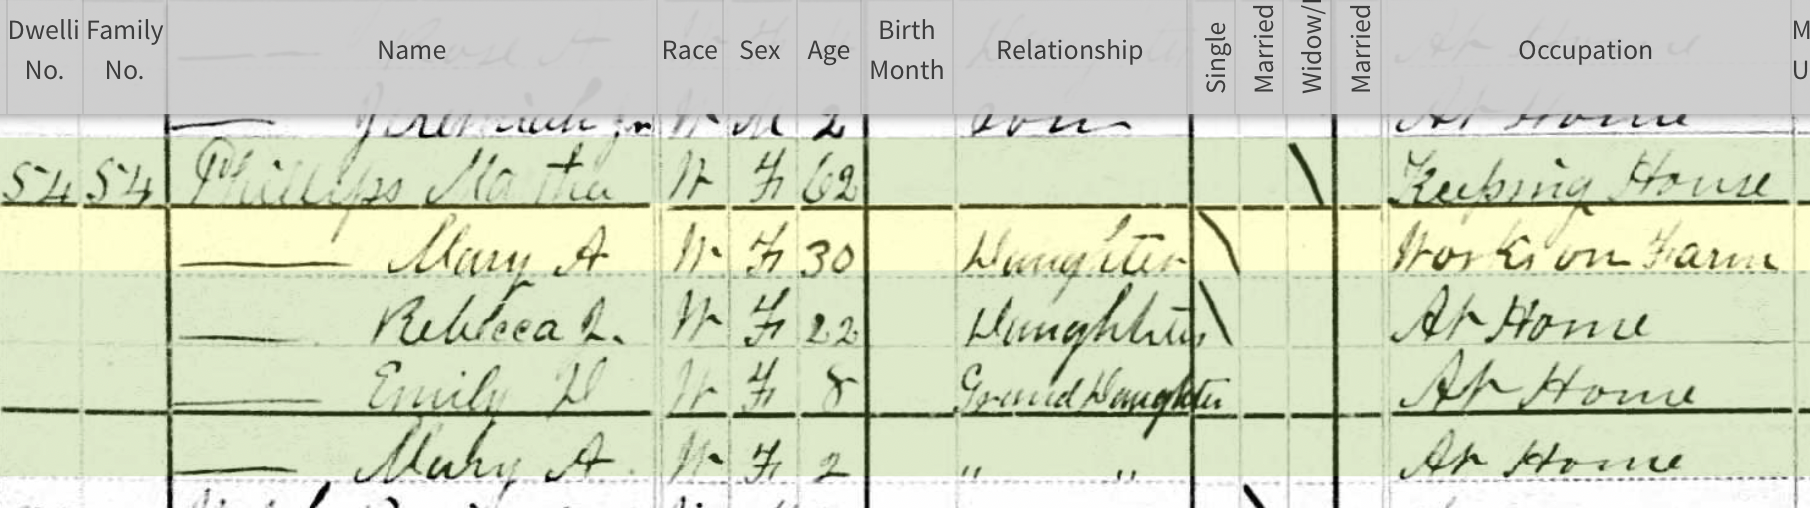 Dwelli No. Family No. Name Race Sex Age Birth Month Relationship Single Married Widow/ Married Occupation M U
Jeremiah Jr W M 2 Son At Home
54 54 Phillips Martha W F 62 Keeping House
Mary A W F 30 Daughter Works on Farm
Rebecca L. W F 22 Daughter At Home
Emily D W F 8 Grand Daughter At Home
Mary A. W F 2 " " At Home